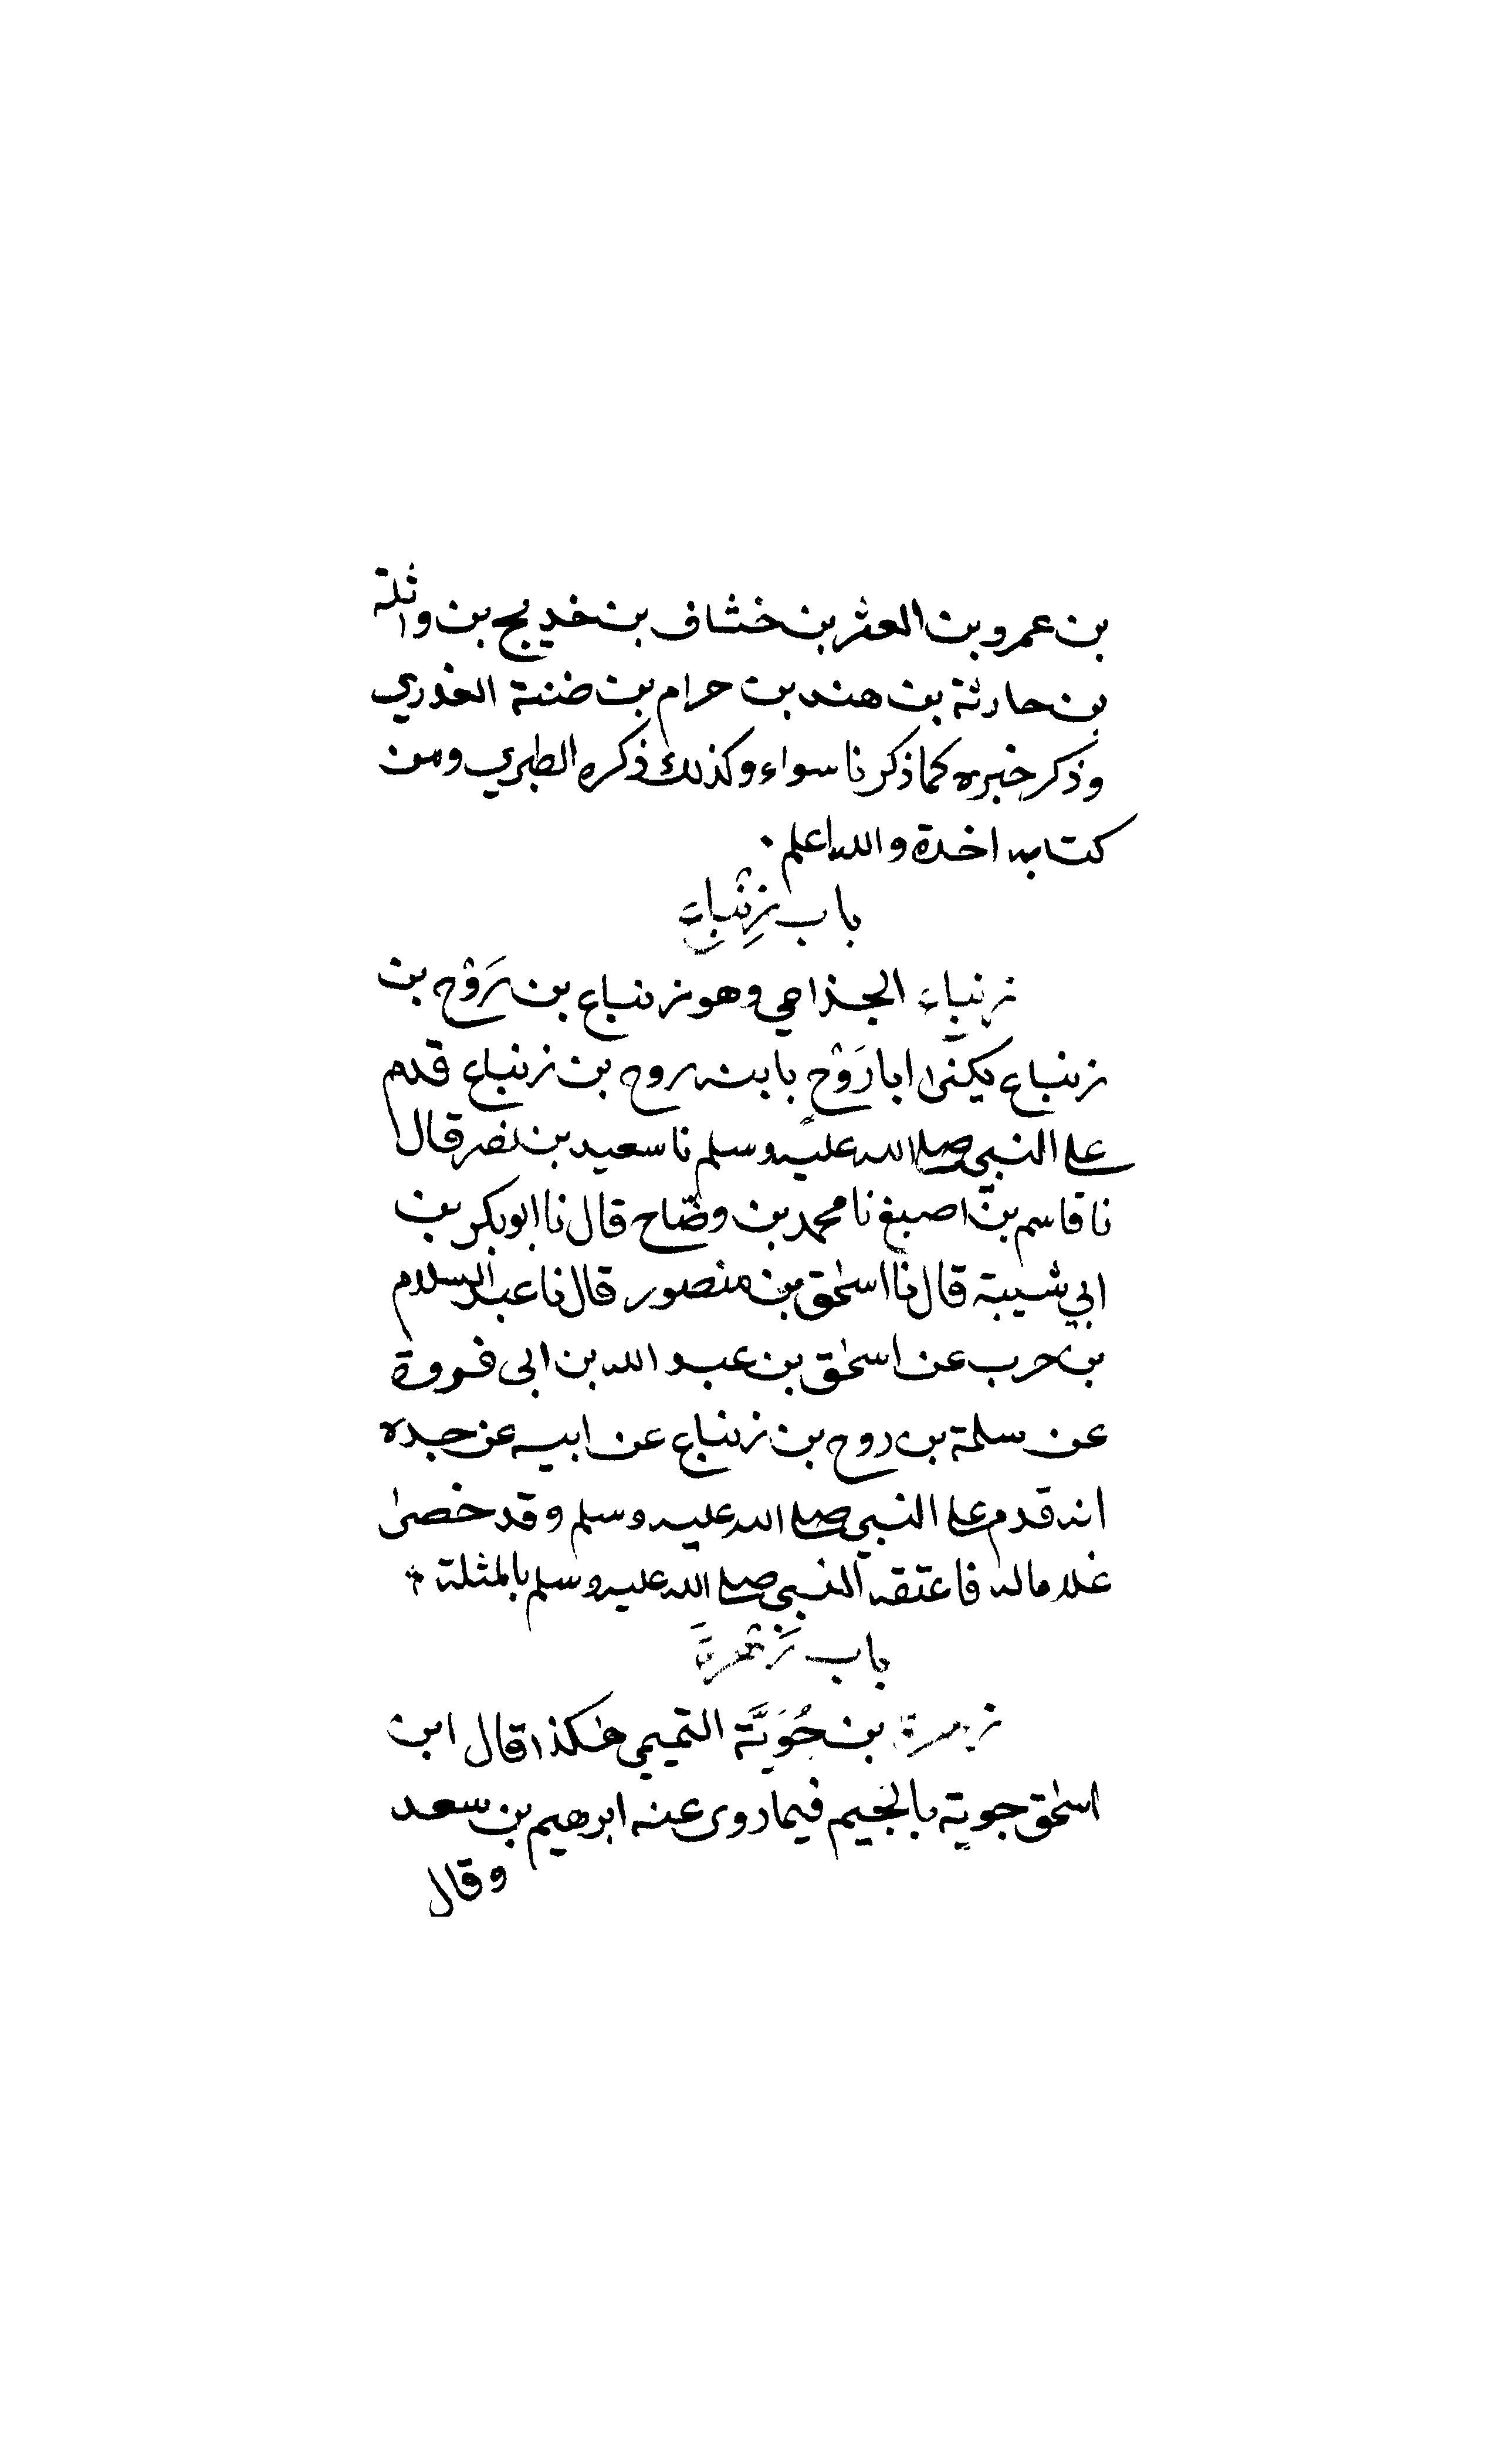 بن عمرو بن العثر بن خشاف بن خديج بن واثلة
بن حارثة بن هند بن حرام بن ضنة العذري
وذكر خبره كما ذكرنا سواء وكذلك ذكره الطبري ومن
كتابه اخذة والله اعلم .
باب زِنْباع
زنباع الجذامي وهو زنباع بن رَوْح بن
زنباع يكنى ابا رَوْح بابنه روح بن زنباع قدم
على النبي صلى الله عليه وسلم نا سعيد بن نصر قال
نا قاسم بن اصبغ نا محمد بن وضّاح قال نا ابو بكر بن
ابي شيبة قال نا اسحٰق بن منصور قال نا عبد السلام
بن حرب عن اسحٰق بن عبد الله بن ابي فروة
عن سلمة بن روح بن زنباع عن ابيه عن جده
انه قدم على النبي صلى الله عليه وسلم وقد خصىٰ
غلاما له فاعتقه النبي صلى الله عليه وسلم بالمثلة
باب زَهْرَة
زهرة بن حُوَيَّة التميمي هٰكذا قال ابن
اسحٰق جوية بالجيم فيما روى عنه ابرهيم بن سعد
وقال